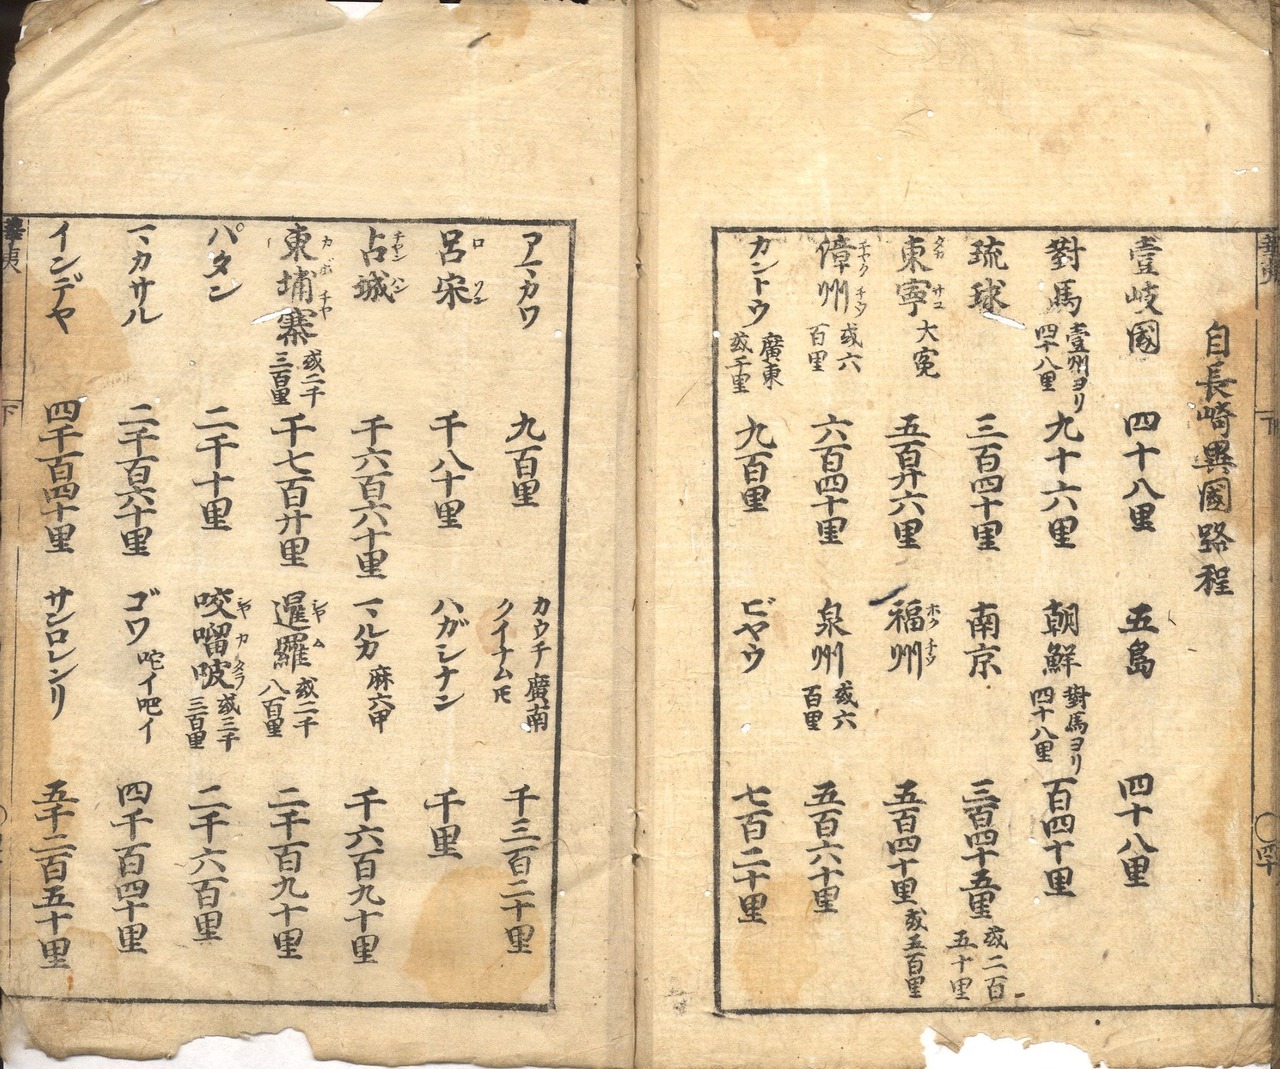 自長崎異國路程
壹岐國 四十八里 五島 四十八里
對馬 壹州ヨリ四十八里 九十六里 朝鮮 對馬ヨリ四十八里 百四十里
琉球 三百四十里 南京 三百四十五里 或二百五十里
東寧 タカサコ 大寃 五百廾六里 福州 ホクチウ 五百四十里 或五百里
漳州 チヤクチウ 或六百里 六百四十里 泉州 或六百里 五百六十里
カントウ 廣東 或千里 九百里 ビヤウ 七百二十里
アマカワ 九百里 カウチ 廣南 クイナム圧 千三百二十里
呂宋 ロソン 千八十里 ハガシナン 千里
占城 チヤンハン 千六百六十里 マルカ 麻六甲 千六百九十里
東埔寨 カボチヤ 或二千三百里 千七百廾里 暹羅 シヤム 或二千八百里 二千百九十里
パタン 二千十里 咬𠺕吧 シヤカタラ 或三千三百里 二千六百里
マカサル 二千百六十里 ゴワ 咜イ吧イ 四千百四十里
インデヤ 四千百四十里 サンロレンソ 五千二百五十里
華夷
下